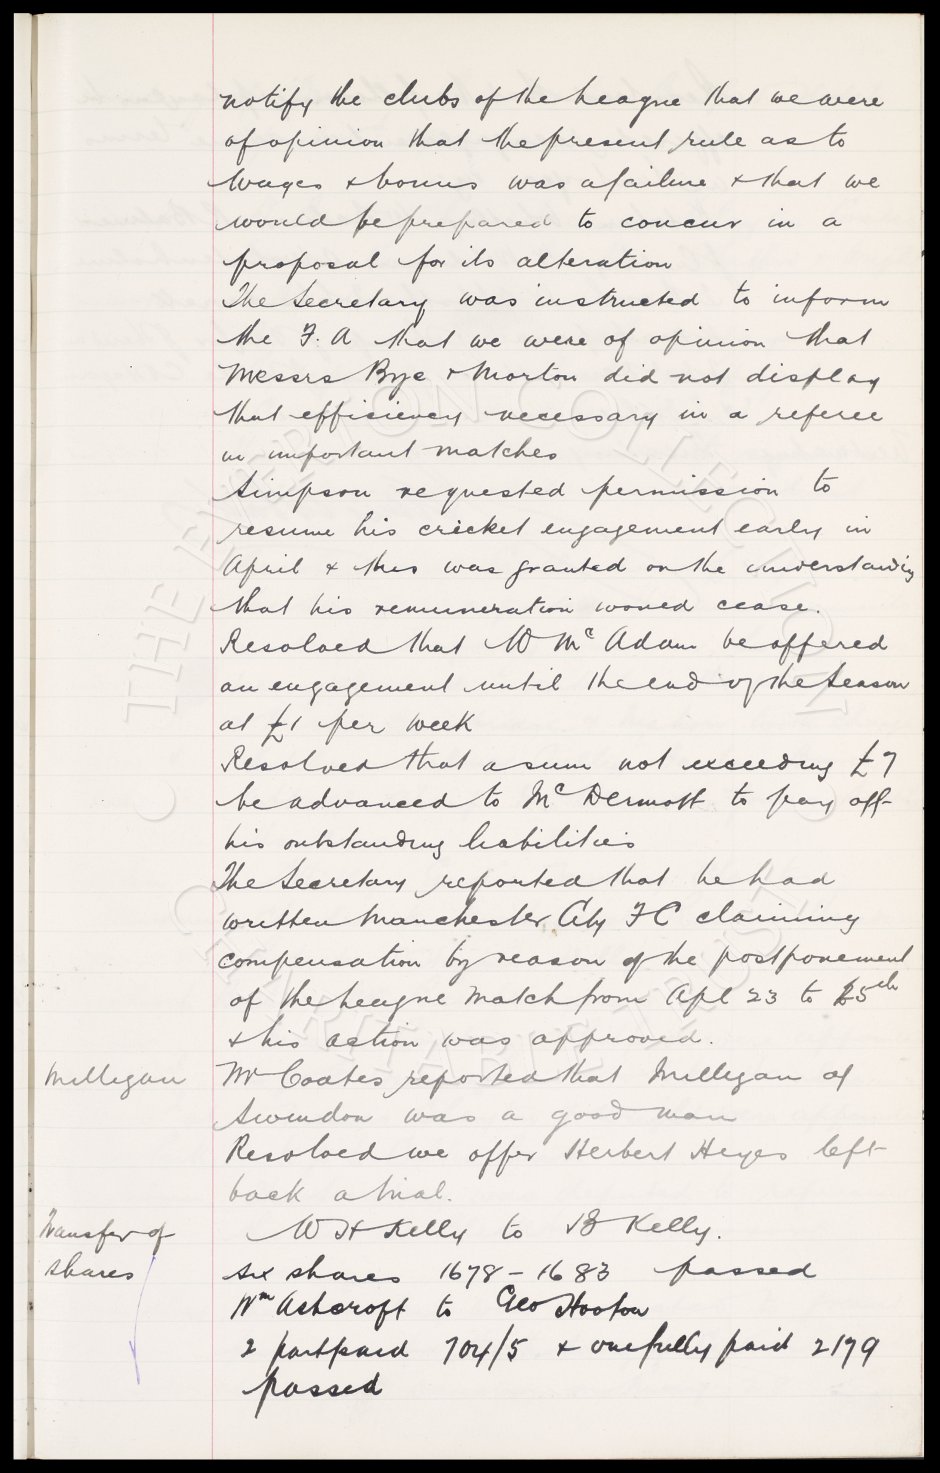 notify the clubs of the League that we were
of opinion that the present rule as to
Wages & bonus was a failure & that we
would be prepared to concur in a
proposal for its alteration
The Secretary was instructed to inform
the F. A that we were of opinion that
Messrs Bye & Morton did not display
that efficiency necessary in a referee
in important matches
Simpson requested permission to
resume his cricket engagement early in
April & this was granted on the understanding
that his remuneration would cease.
Resolved that W Mc Adam be offered
an engagement until the end of the Season
at £1 per week
Resolved that a sum not exceeding £7
be advanced to Mc Dermott to pay off
his outstanding liabilities
The Secretary reported that he had
written Manchester City F C claiming
compensation by reason of the postponement
of the League Match from Apl 23 to 25th
& his action was approved.
Milligan
Mr Coates reported that Milligan of
Swindon was a good man
Resolved we offer Herbert Heyes left
back a trial.
Transfer of
shares
W H Kelly to B Kelly.
six shares 1678 - 1683 passed
Wm Ashcroft to Geo Hooton
2 partpaid 704/5 & one fully paid 2179
passed
THE EVERTON COLLECTION
CHARITABLE TRUST